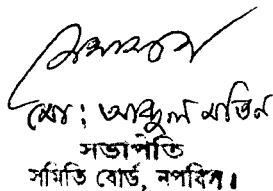 মো: আব্দুল মতিন
সভাপতি
সমিতি বোর্ড, নপবিস।